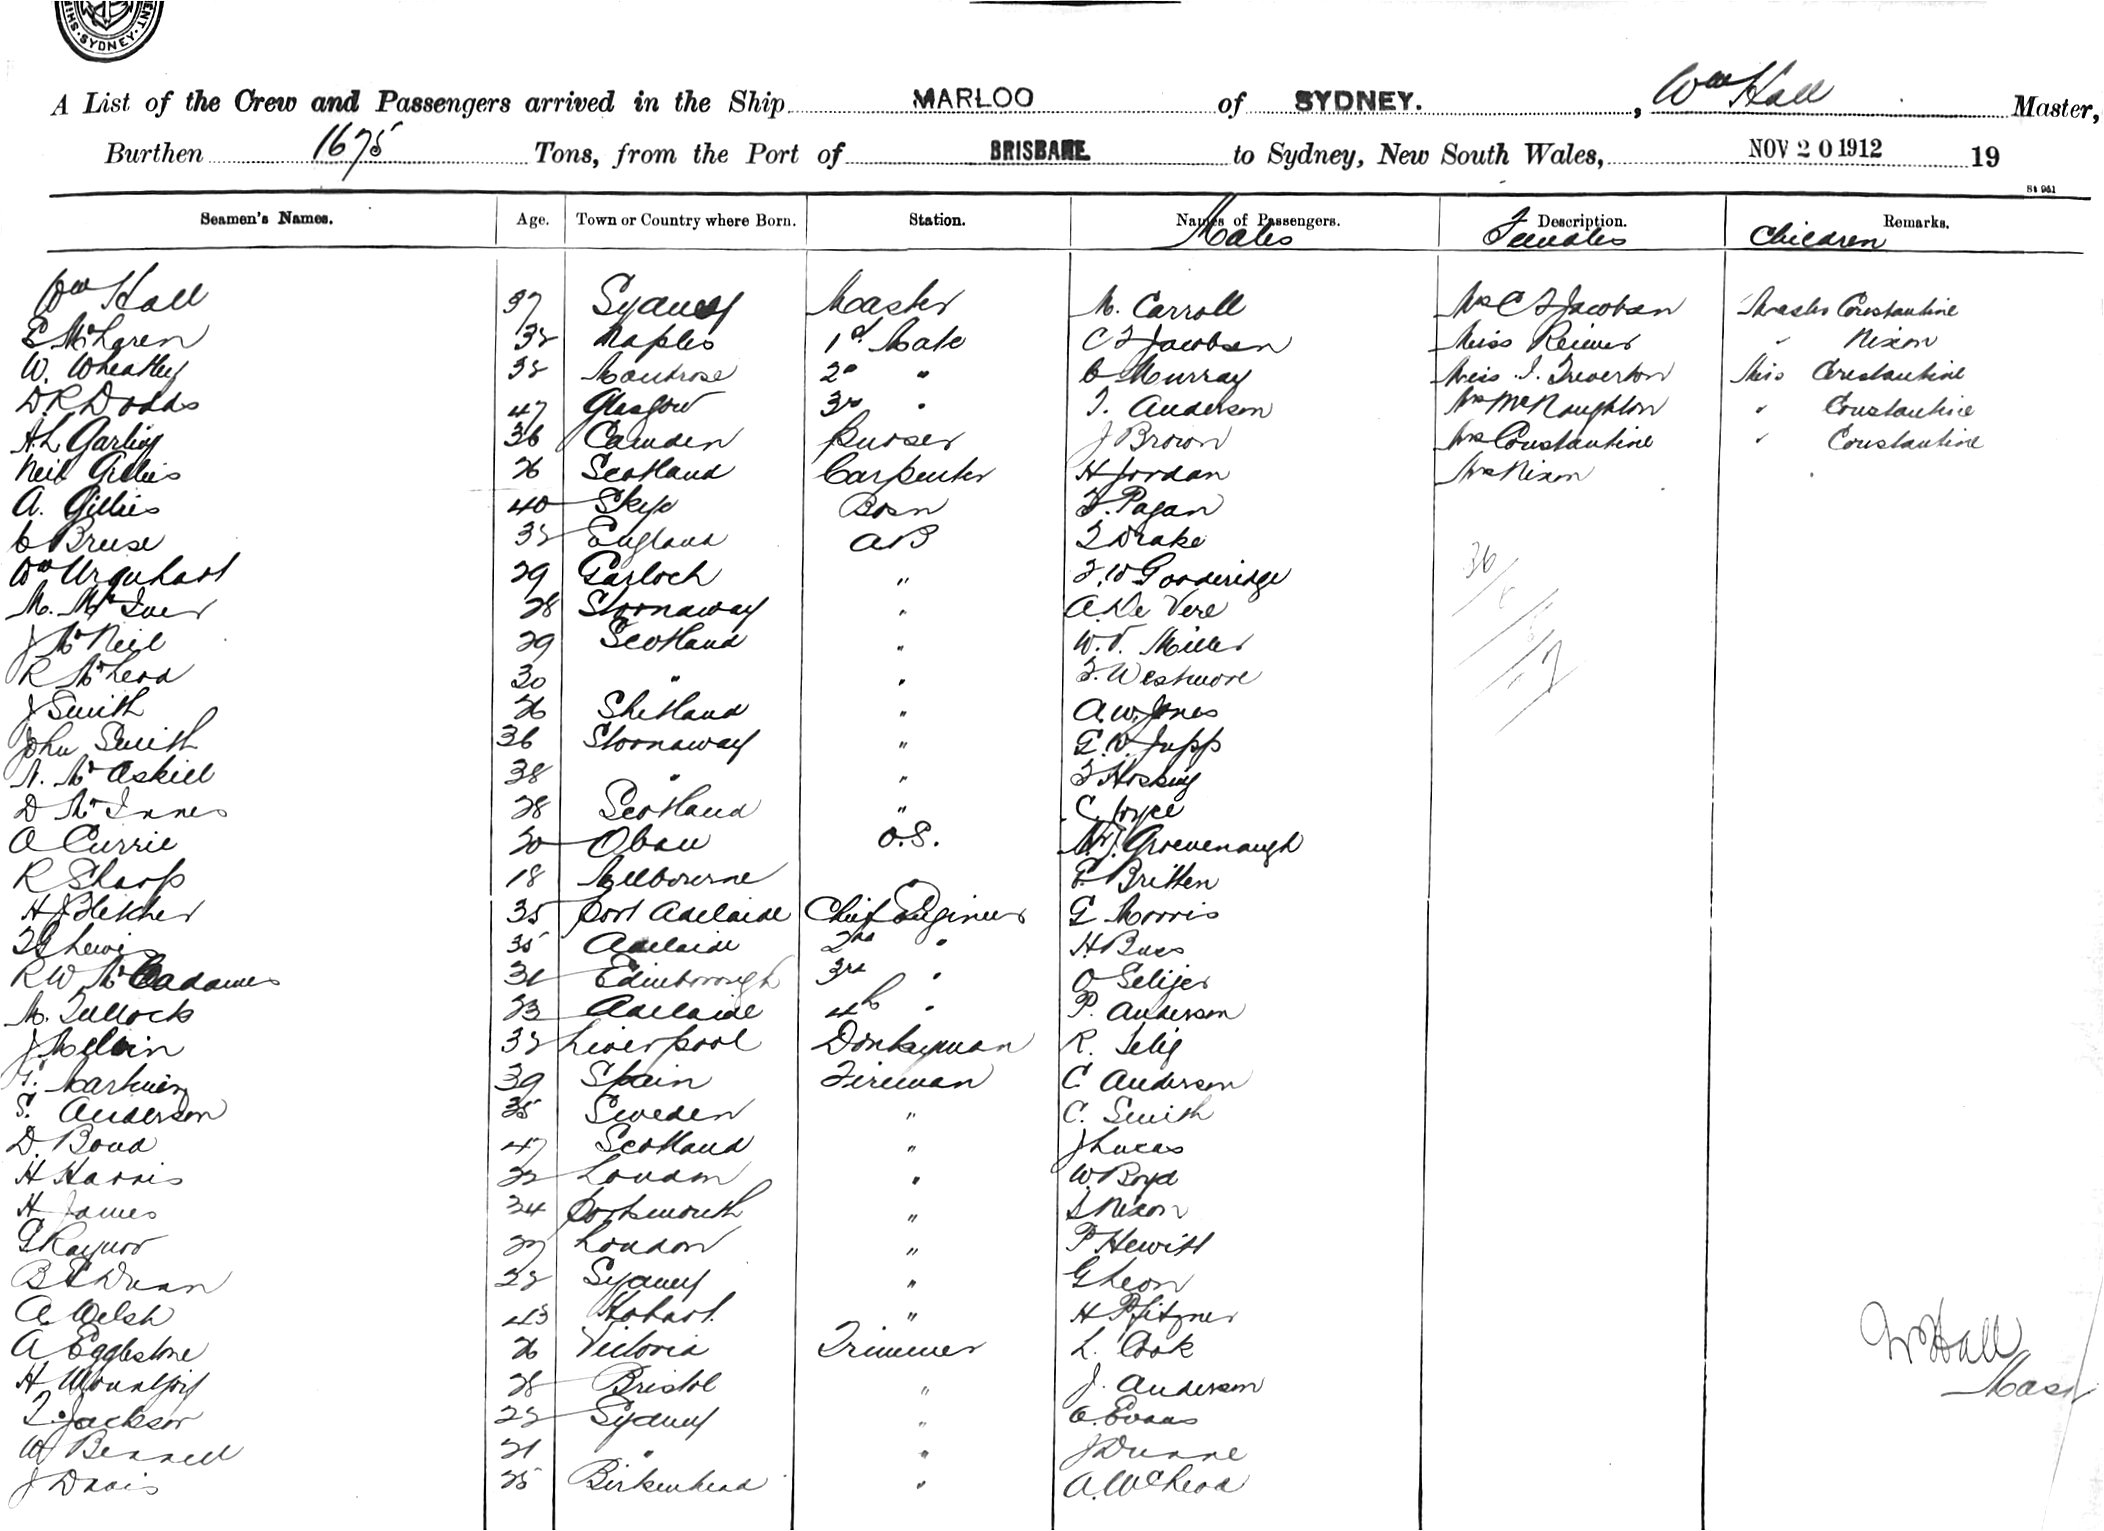 SYDNEY
A List of the Crew and Passengers arrived in the Ship MARLOO of SYDNEY. , Wm Hall Master,
Burthen 1675 Tons, from the Port of BRISBANE to Sydney, New South Wales, NOV 20 1912 19
Seamen's Names. Age. Town or Country where Born. Station. Names of Passengers. Description. Remarks.
Males Females Children
Wm Hall 37 Sydney Master M. Carroll Mrs C F Jacobsen Master Constantine
E McLaren 32 Naples 1st Mate C F Jacobsen Miss Reimer " Nixon
W. Wheatley 32 Montrose 2nd " C Murray Miss I. Treverton Miss Constantine
D. R Dodds 47 Glasgow 3rd " T. Anderson Mrs McNaughton " Constantine
A. L Garling 36 Camden Purser J Brown Mrs Constantine " Constantine
Neil Gillies 26 Scotland Carpenter H Jordan Mrs Nixon
A. Gillies 40 Skye Bosn F. Pagan
C Bruse 32 England AB F Drake
Wm Urquhart 29 Garloch " F. W Gooderidge
M. McIver 28 Stornaway " A. De Vere
J McNeil 29 Scotland " W. V. Miller
R McLeod 30 " " F. Westmore
J Smith 26 Shetland " A. W. Jones
John Smith 36 Stornaway " G. W. Jupp
N. McAskill 38 " " F Hosking
D McInnes 28 Scotland " C. Joyce
A Currie 20 Oban O.S. Groevenaugh
R Sharp 18 Melbourne E Britten
H J Fletcher 35 Port Adelaide Chief Engineer G Morris
Lewis 35 Adelaide 2nd " H. Buss
R W McCadames 31 Edinborough 3rd " O Selijer
M. Tullock 23 Adelaide 4th " P. Anderson
J Melvin 32 Liverpool Donkeyman R. Selig
Martinez 39 Spain Fireman C Anderson
S. Anderson 35 Sweden " C. Smith
D. Bond 47 Scotland " J Lucas
H Harris 22 London " W Boyd
H James 34 Portsmouth " S Nixon
G Raynor 27 London " P Hewitt
B E Dunn 22 Sydney " G Leon
A. Welsh 43 Hobart. " H Pfitzner
A Egglestone 26 Victoria Trimmer L. Cook
H Mountjoy 28 Bristol " J. Anderson
T. Jackson 22 Sydney " O. Evans
W Bennell 21 " " J Dunne
J Davis 25 Birkenhead " A. McLeod
36
Wm Hall
Mast